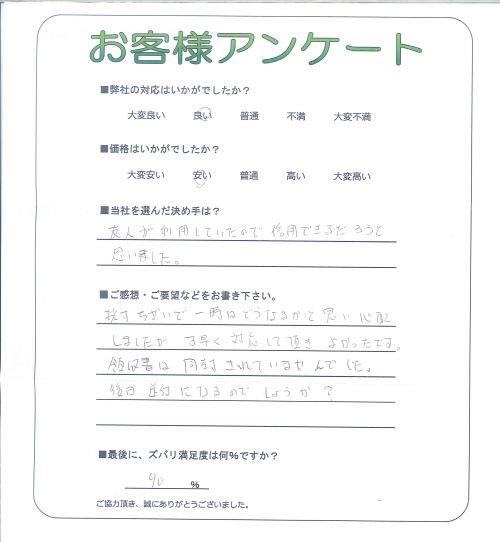 お客様アンケート
■弊社の対応はいかがでしたか？
大変良い 良い 普通 不満 大変不満
■価格はいかがでしたか？
大変安い 安い 普通 高い 大変高い
■当社を選んだ決め手は？
友人が利用していたので信用できるだろうと
思いました。
■ご感想・ご要望などをお書き下さい。
ちがいで一時はどうなるかと思い心配
しましたが す早く対応して頂きよかったです。
領収書は同封されていませんでした。
後日送付になるのでしょうか？
■最後に、ズバリ満足度は何%ですか？
90 %
ご協力頂き、誠にありがとうございました。